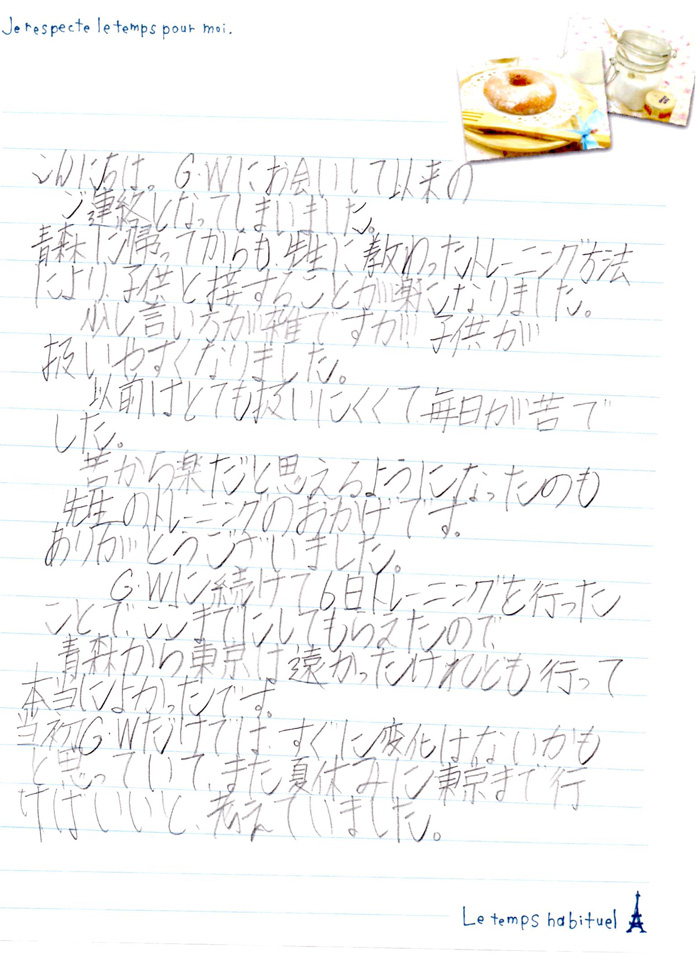 Je respecte le temps pour moi.
こんにちは。G・Wにお会いして以来の
ご連絡となってしまいました。
青森に帰ってからも、先生に教わったトレーニング方法
により、子供と接することが楽になりました。
少し言い方が雑ですが、子供が
扱いやすくなりました。
以前はとても扱いにくくて毎日が苦で
した。
苦から楽だと思えるようになったのも
先生のトレーニングのおかげです。
ありがとうございました。
G・Wに続けて6日トレーニングを行った
ことで、ここまでにしてもらえたので、
青森から東京は遠かったけれども行って
本当によかったです。
当初G・Wだけでは、すぐに変化はないかも
と思っていて、また夏休みに東京まで行
けばいいと、考えていました。
Le temps habituel